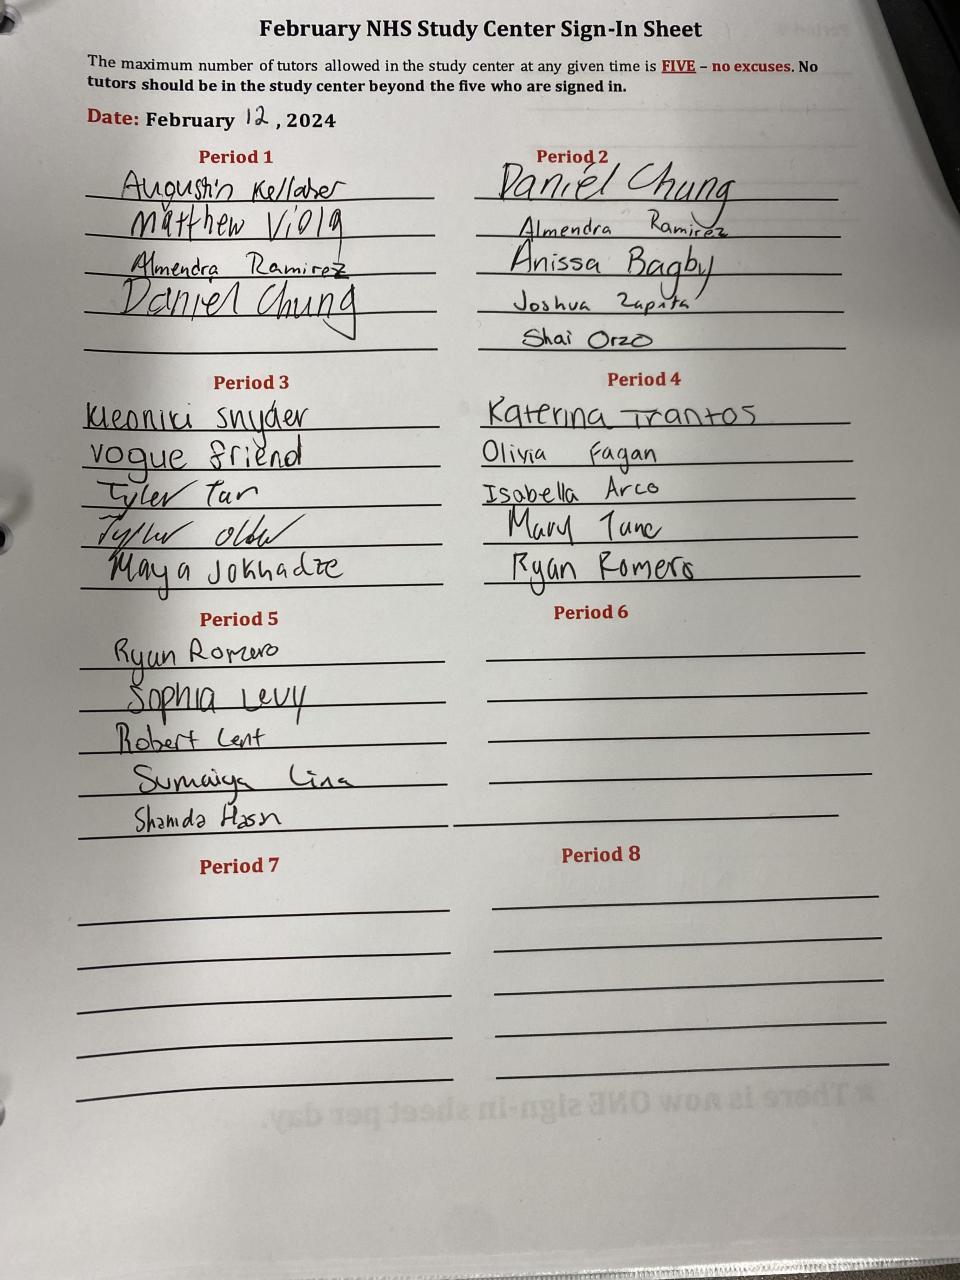 February NHS Study Center Sign-In Sheet
The maximum number of tutors allowed in the study center at any given time is FIVE – no excuses. No
tutors should be in the study center beyond the five who are signed in.
Date: February 12, 2024
Period 1
Augustin Kellaher
Matthew Viola
Almendra Ramirez
Daniel Chung
Period 2
Daniel Chung
Almendra Ramirez
Anissa Bagby
Joshua Zapata
Shai Orzo
Period 3
Kleoniki Snyder
Vogue friend
Tyler Tan
Tyler
Maya Jokhadze
Period 4
Katerina Trantos
Olivia Fagan
Isabella Arco
Mary Tane
Ryan Romero
Period 5
Ryan Romero
Sophia Levy
Robert Cent
Sumaiya Lina
Shamida Hasn
Period 6
Period 7
Period 8
* There is now ONE sign-in sheet per day.